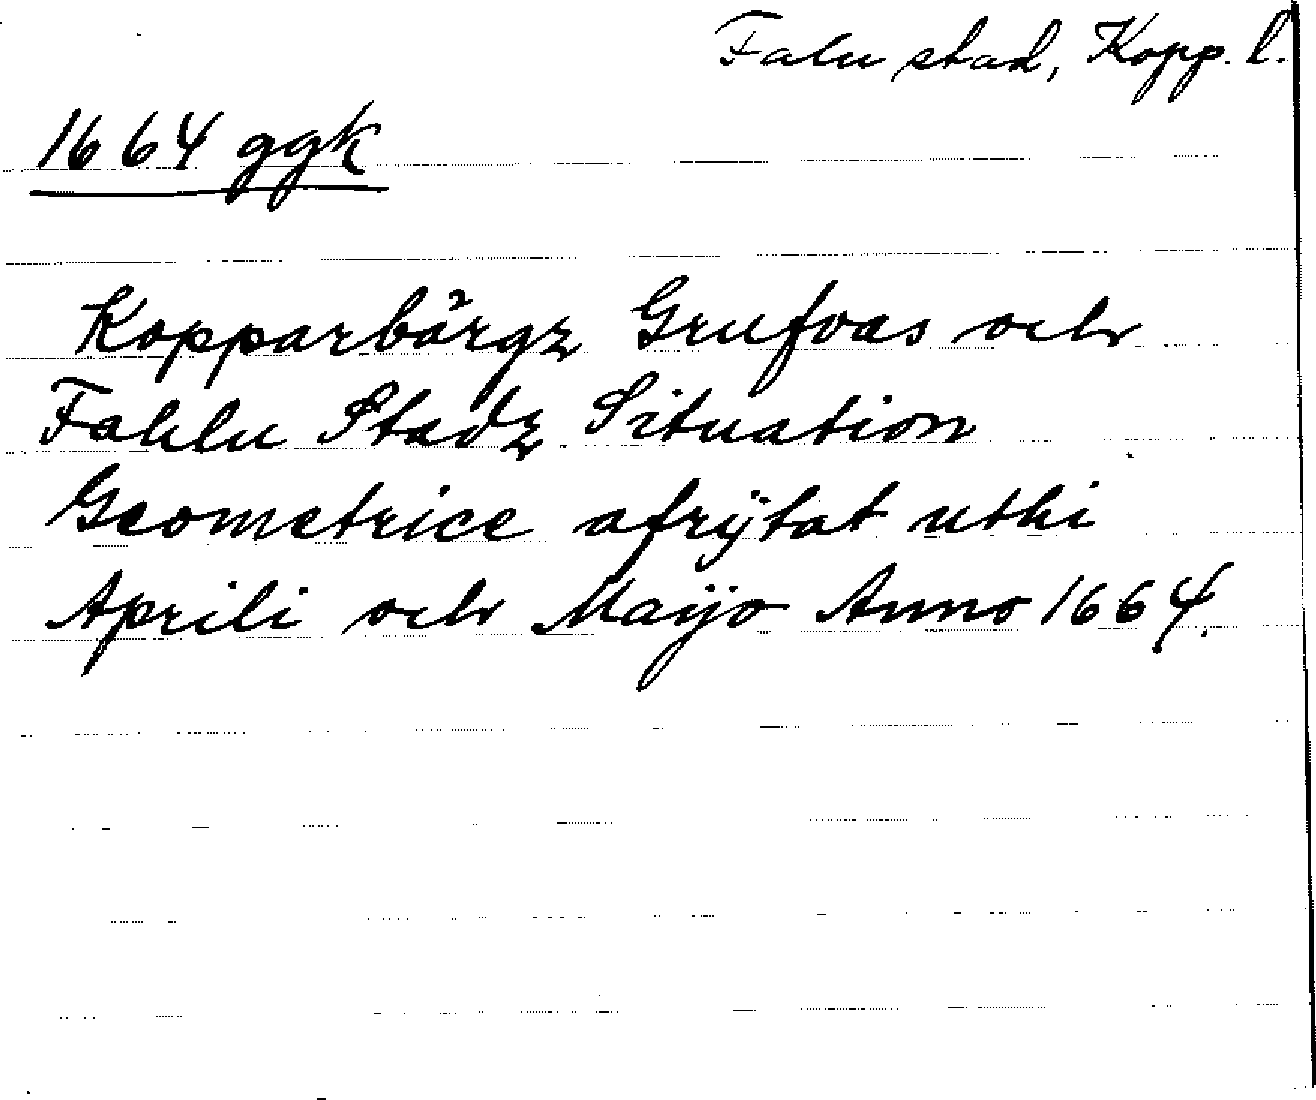 Falu stad, Kopp. l.
1664 ggk
Kopparbårgz Grufvas och
Fahlu Stadz Situation
Geometrice afrÿtat uthi
Aprili och Maijo Anno 1664.